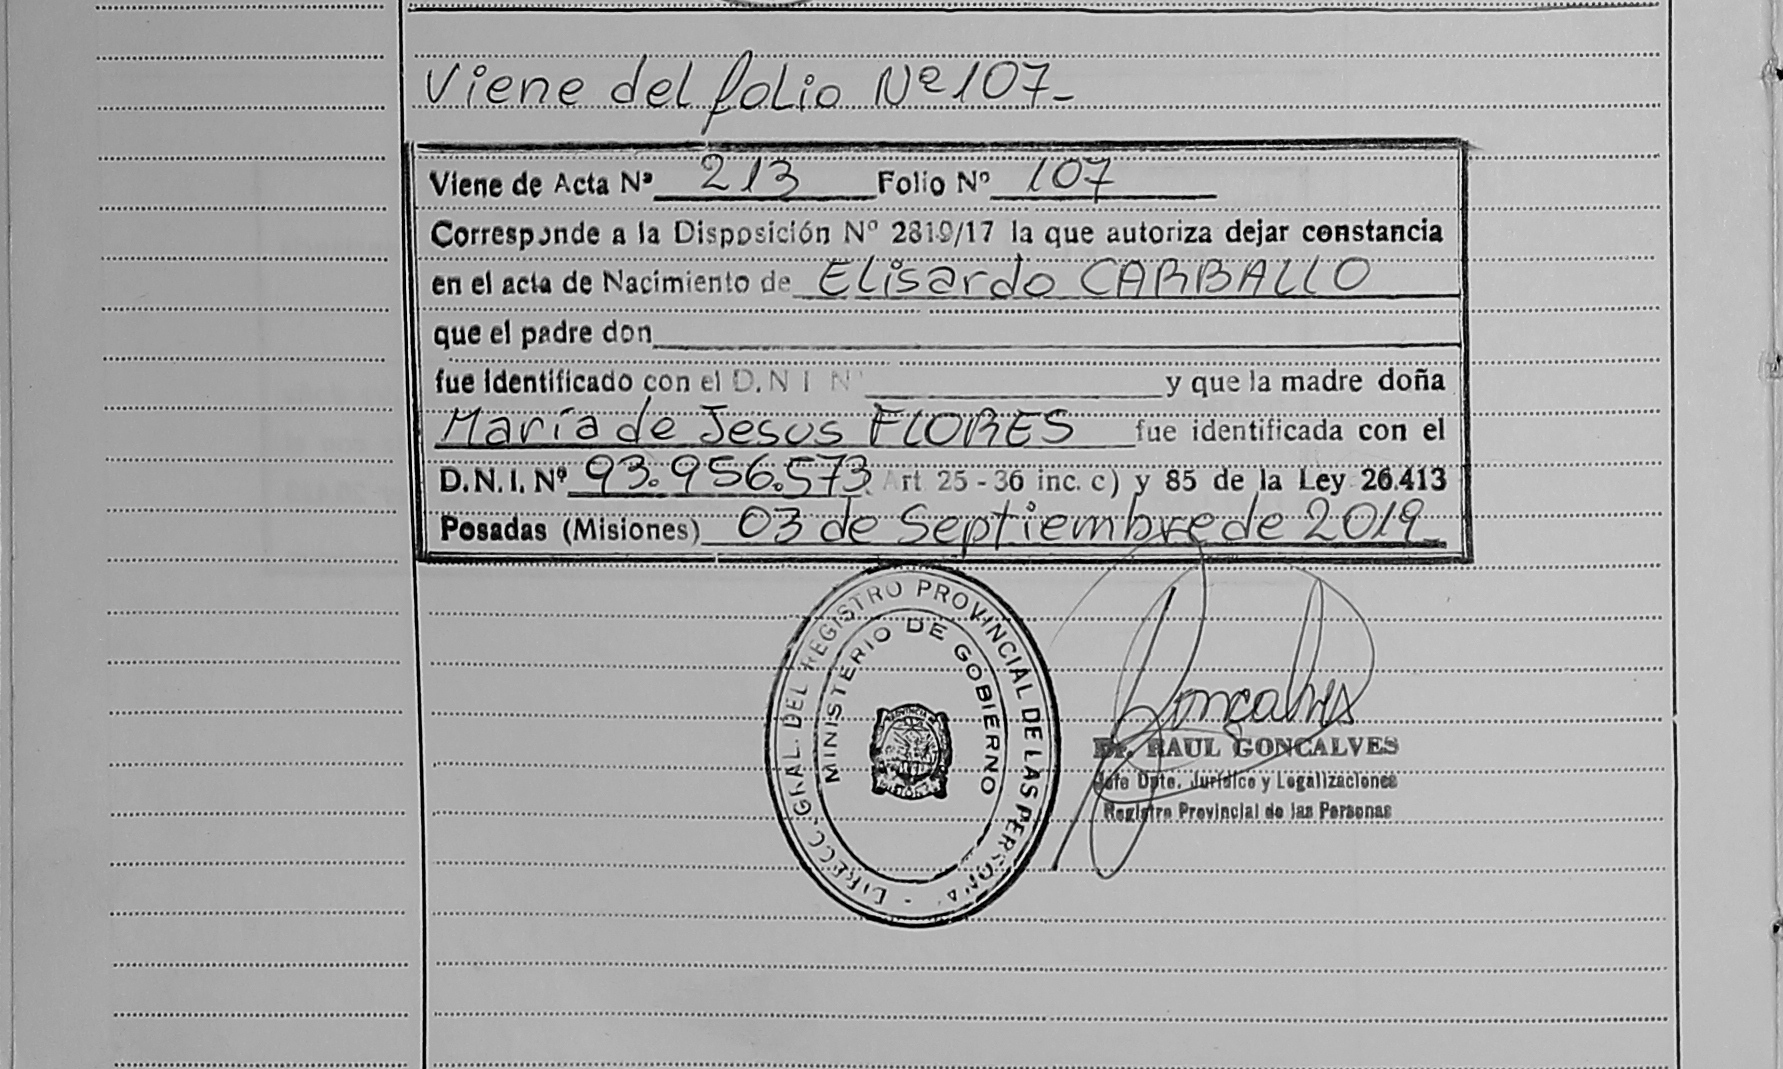 Viene del folio Nº 107-
Viene de Acta Nº 213 Folio Nº 107
Corresponde a la Disposición Nº 2819/17 la que autoriza dejar constancia
en el acta de Nacimiento de Elisardo CARBALLO
que el padre don
fue identificado con el D.N I N° y que la madre doña
María de Jesus FLORES fue identificada con el
D.N.I. Nº 93.956.573 Art 25 - 36 inc. c) y 85 de la Ley 26.413
Posadas (Misiones) 03 de Septiembre de 2019
DIRECC. GRAL. DEL REGISTRO PROVINCIAL DE LAS PERSONAS
MINISTERIO DE GOBIERNO
PROVINCIA DE
MISIONES
Goncalves
Dr. RAUL GONCALVES
Jefe Dpto. Jurídico y Legalizaciones
Registro Provincial de las Personas